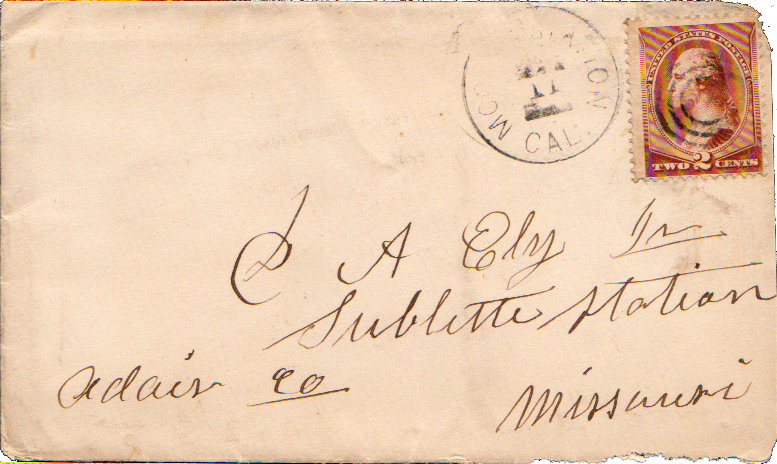 STATION
11
CAL.
UNITED STATES POSTAGE
TWO 2 CENTS
C A Ely Jr
Sublette Station
Adair Co
Missouri